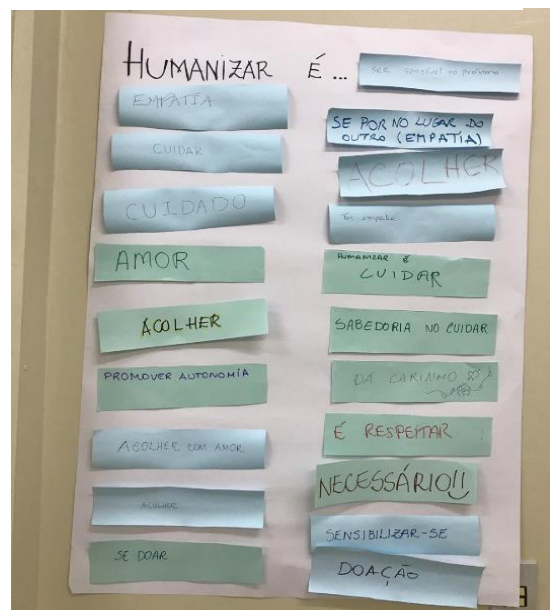 HUMANIZAR É...
EMPATIA
CUIDAR
CUIDADO
AMOR
ACOLHER
PROMOVER AUTONOMIA
ACOLHER COM AMOR
ACOLHER
SE DOAR
SER sensível ao próximo
SE POR NO LUGAR DO
OUTRO (EMPATIA)
ACOLHER
Ter empatia
HUMANIZAR É
CUIDAR
SABEDORIA NO CUIDAR
DÁ CARINHO
É RESPEITAR
NECESSÁRIO!!
SENSIBILIZAR-SE
DOAÇÃO